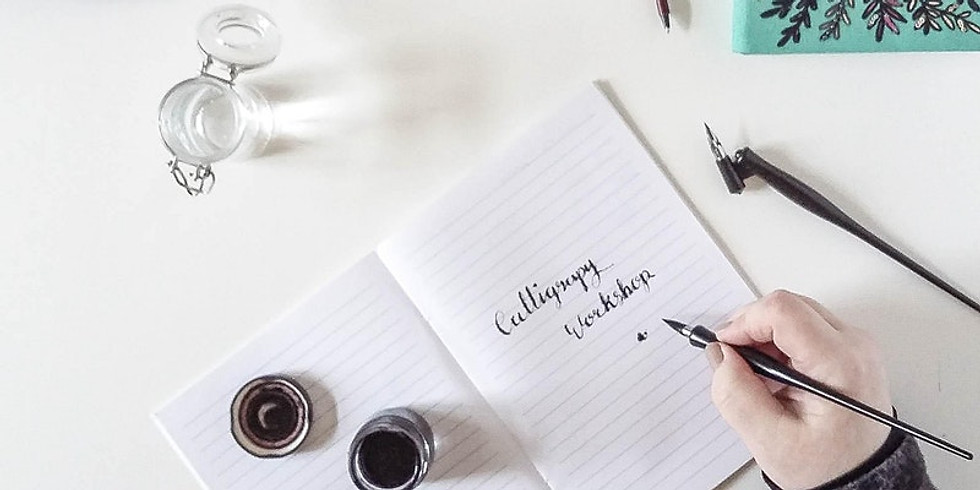 Calligrapy
Workshop